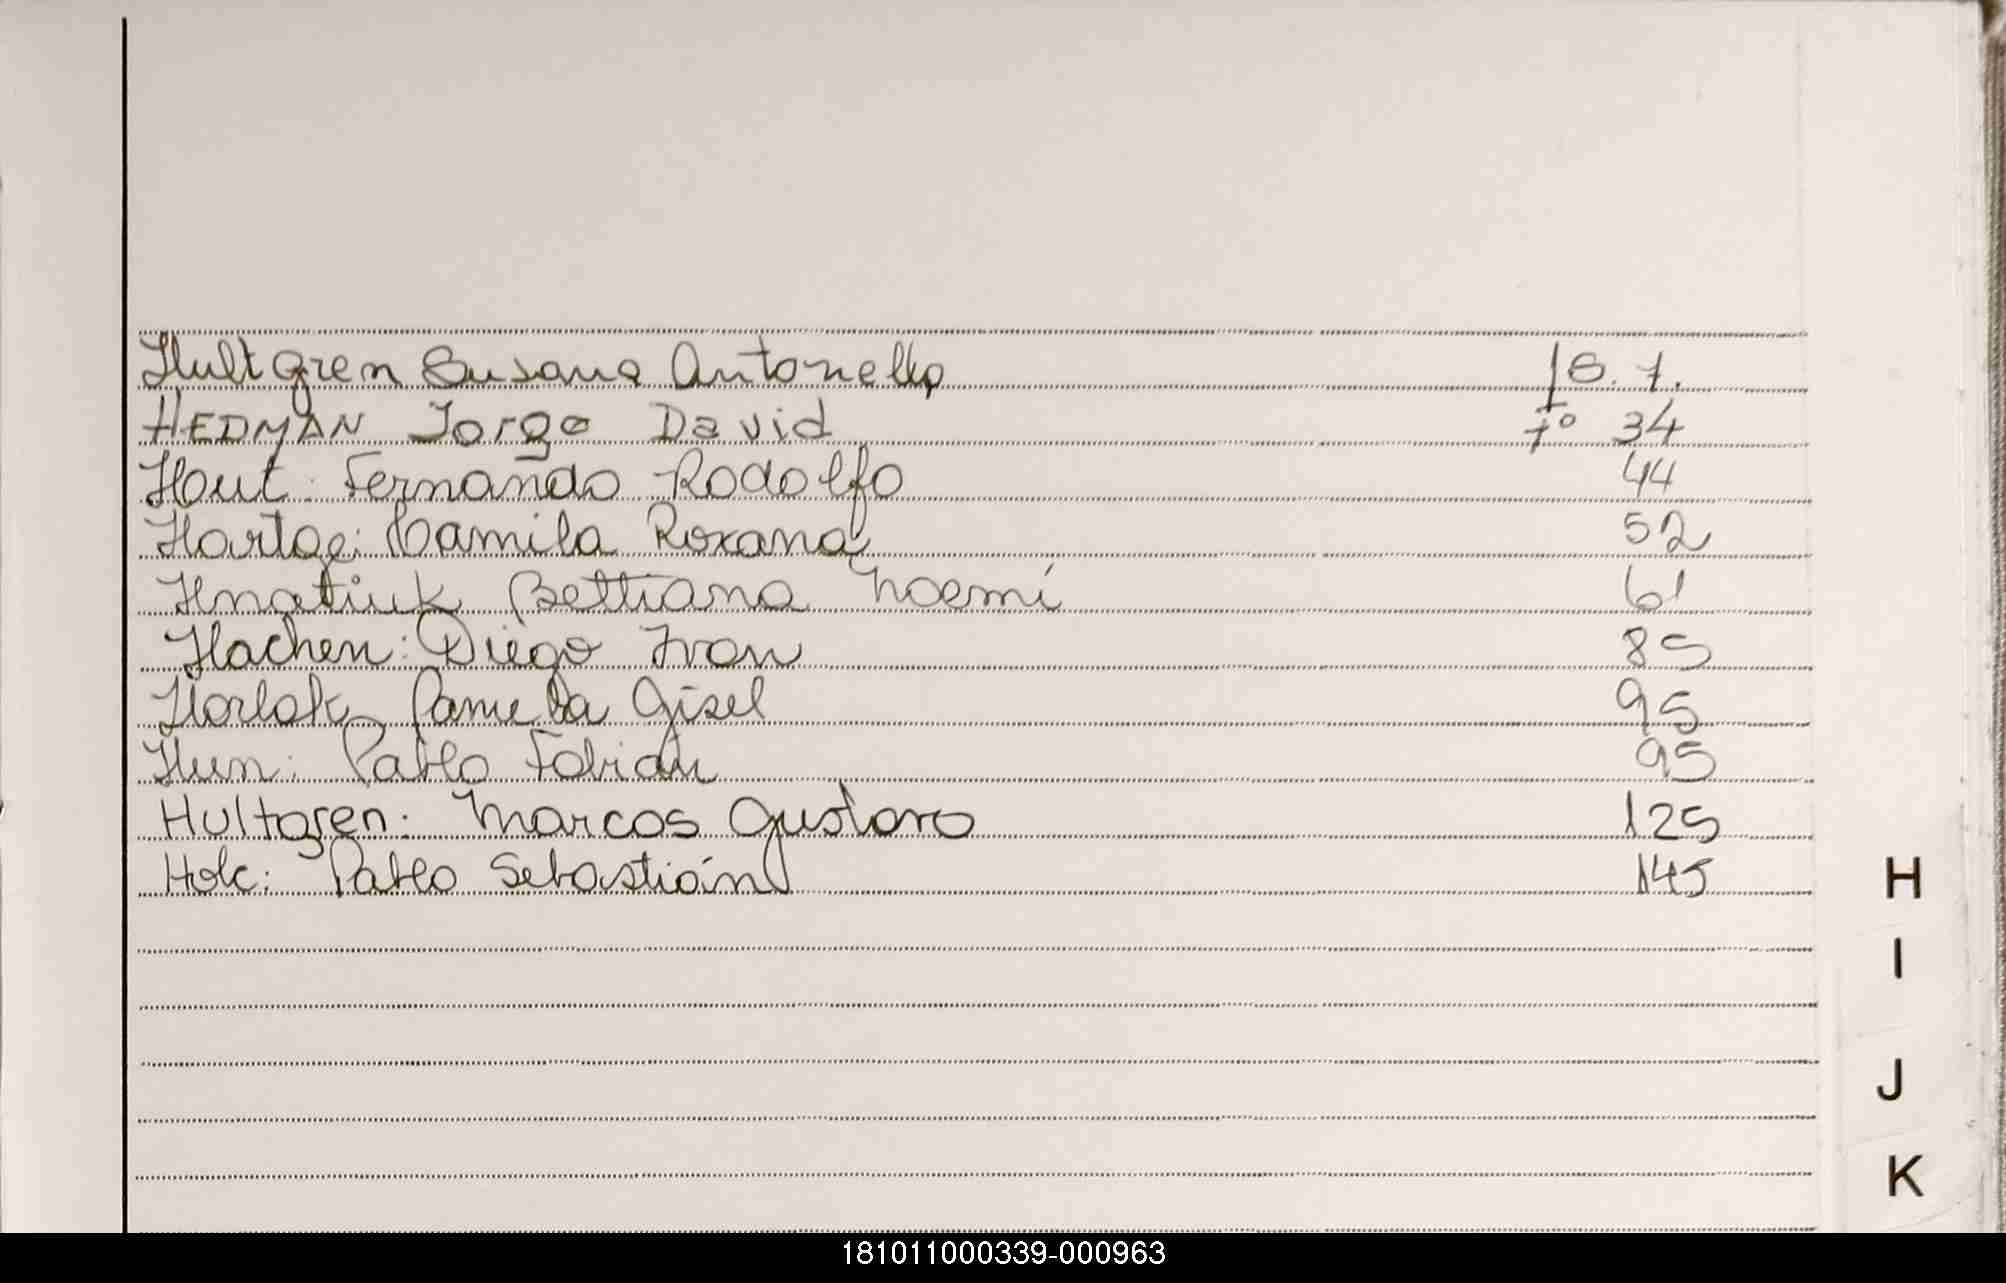 Hultgren Susana Antonella fs. 1.
HEDMAN Jorge David Fº 34
Hout: Fernando Rodolfo 44
Hartge: Camila Roxana 52
Hnatiuk Bettiana Noemí 61
Hachen: Diego Ivan 85
Horlak Pamela Gisel 95
Hun: Pablo Fabian 95
Hultgren: Marcos Gustavo 125
Holc: Pablo Sebastián 145
H
I
J
K
181011000339-000963